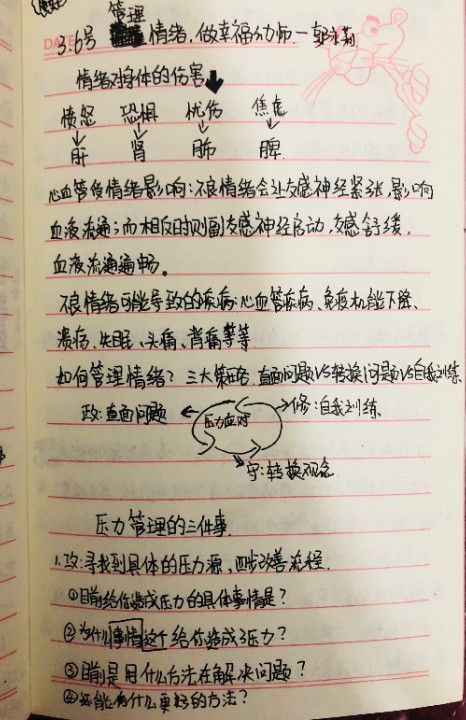 管理
DATE 3.6号 情绪,做幸福分力师—郭永莉
情绪对身体的伤害
愤怒 恐惧 忧伤 焦虑
肝 肾 肺 脾
心血管受情绪影响:不良情绪会让交感神经紧张,影响
血液流通;而相反的则副交感神经启动,交感舒缓,
血液流通通畅。
不良情绪可能导致的疾病:心血管疾病、免疫机能下降、
溃疡、失眠、头痛、背痛等等
如何管理情绪?三大策略,直面问题VS转换问题VS自我训练
攻:直面问题 压力应对 修:自我训练
守:转换观念
压力管理的三件事
1、攻:寻找到具体的压力源,四步改善流程.
①目前给你造成压力的具体事情是?
②为什么事情这个给你造成了压力?
③目前是用什么方法在解决问题?
④还能有什么更好的方法?